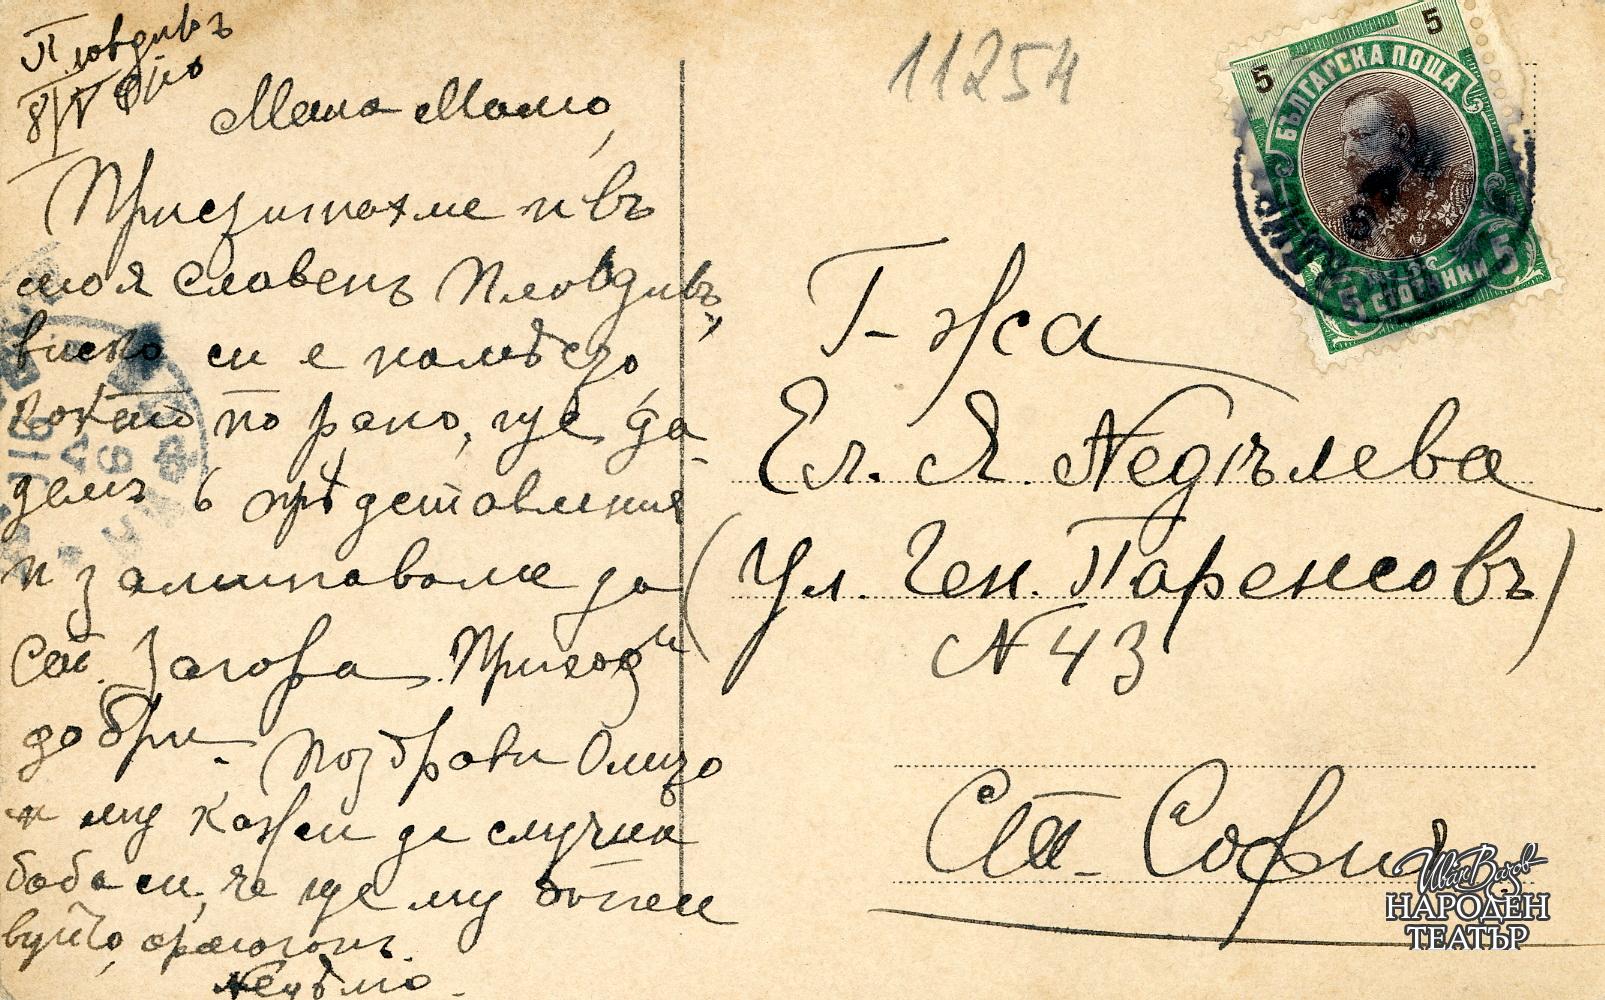 Пловдивъ
8/V 910
Мила Мамо,
Пристигнахме и въ
тоя славенъ Пловдивъ,
виско си е на мѣсто,
както по рано, ще да-
демъ 6 прѣдставления
и заминаваме за
Ст. Загора. Приходи
добри. Поздрави
и му кажи да слуша
баба си, че ще му
вуйчо,
11254
БЪЛГАРСКА ПОЩА
5 5
5 СТОТИНКИ 5
Г-жа
Ел. Я. Недѣлева
(Ул. Ген. Паренсовъ)
N 43
Ст. София
Иван Вазов
НАРОДЕН
ТЕАТЪР